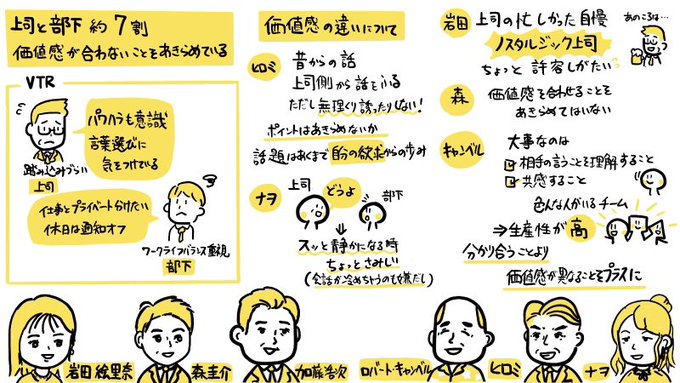 上司と部下 約7割
価値感が合わないことをあきらめている
VTR
パワハラも意識
言葉選びに
気をつけている
踏み込みづらい
上司
仕事とプライベート分けたい
休日は通知オフ
ワークライフバランス重視
部下
価値感の違いについて
ヒロミ
昔からの話
上司側から話をふる
ただし無理くり誘ったりしない!
ポイントはあきらめないか
話題はあくまで自分の欲求からの歩み
ナヲ
上司
どうよ
部下
スッと静かになる時
ちょっとさみしい
(会話が冷めちゃうのも嫌だし)
岩田
上司の忙しかった自慢
あのころは…
ノスタルジック上司
ちょっと許容しがたい
森
価値感を合わせることを
あきらめてはいない
キャンベル
大事なのは
相手の言うことを理解すること
共感すること
色んな人がいるチーム
⇒生産性が高
分かり合うことより
価値感が異なることをプラスに
岩田絵里奈
森圭介
加藤浩次
ロバート・キャンベル
ヒロミ
ナヲ